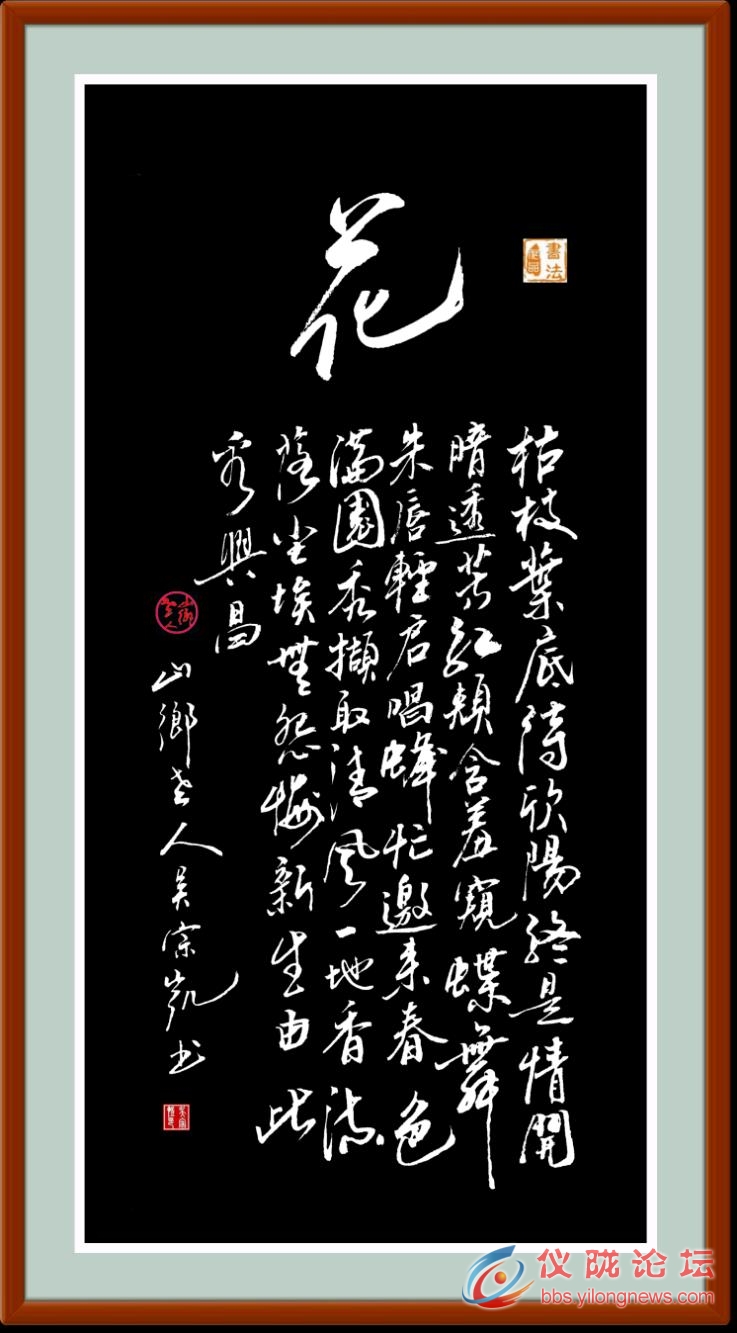 花
書法
枯枝葉底待欣陽終是情開
暗透芳紅頰含羞窺蝶舞
朱唇輕启唱蜂忙邀来春色
滿園秀擷取清風一地香
落尘埃無怨悔新生由此
興昌
山鄉老人
山鄉老人吴宗凯书
仪陇论坛
bbs.yilongnews.com